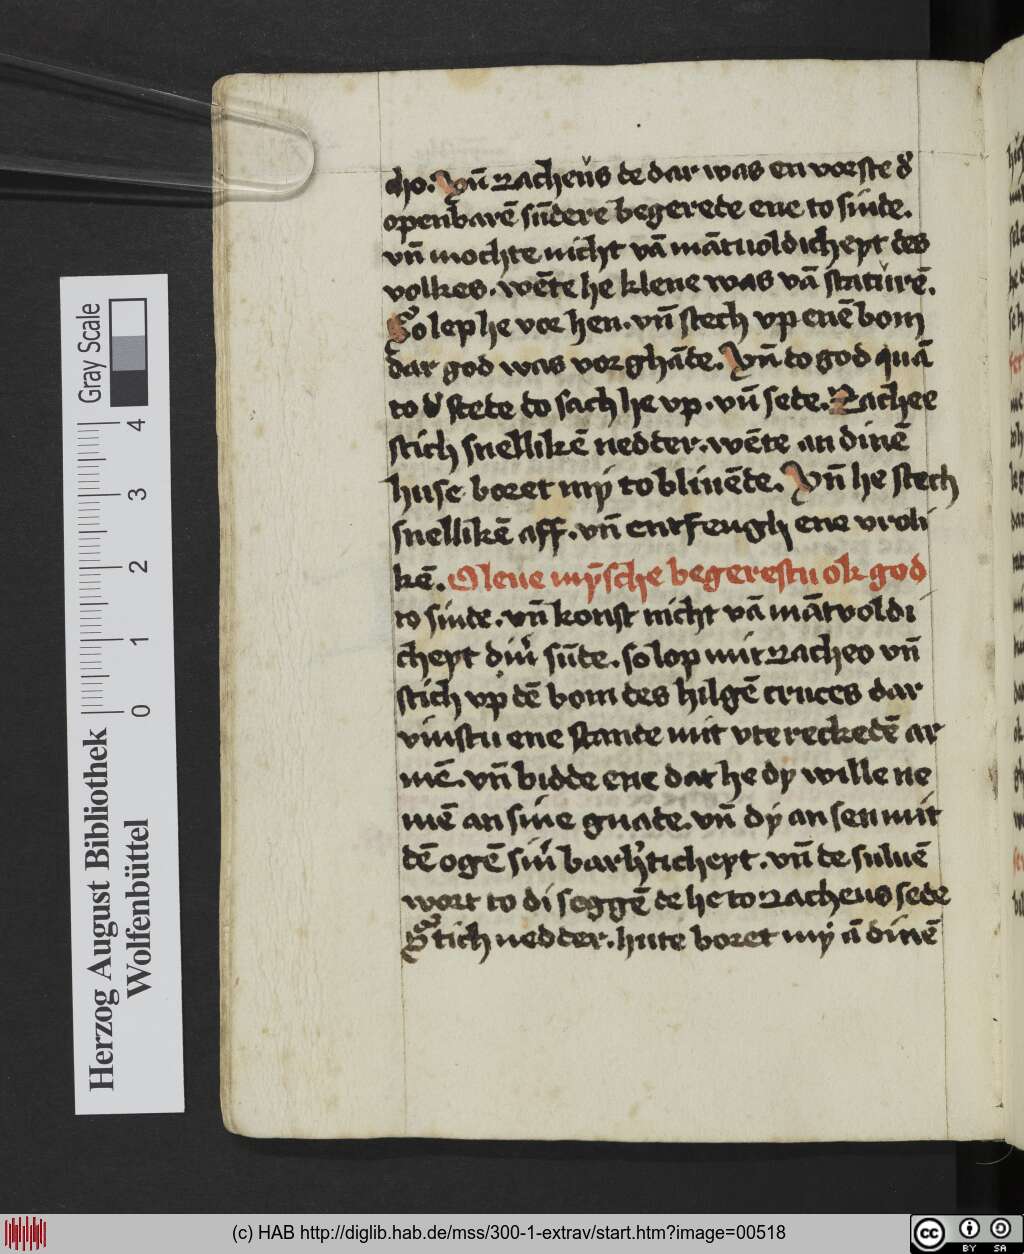 cho. Vn̄ zacheu̇s de dar was en vorste d'
openbarē sūdere begerede ene to sinde.
vn̄ mochte nicht vā mātuoldichept des
volkes. wēte he klene was vā statu̇rē.
So lep he vor hen. vn̄ stech vp enē bom
dar god was vor ghāde. Vn̄ do god quā
to d' stede do sach he vp. vn̄ sede. Zachee
stich snellikē nedder. wēte an dinē
huse boret mẏ to bliuēde. Vn̄ he stech
snellikē aff. vn̄ entfengh ene vroli
kē. O leue mȳsche begerestu ok god
to sinde. vn̄ konst nicht vā mātuoldi
chept din' sūde. so lop mit zacheo vn̄
stich vp dē bom des hilgē cruces dar
vinstu ene stande mit vtereckedē ar
mē. vn̄ bidde ene dat he dy wille ne
mē an sine gnade. vn̄ dẏ an sen mit
dē ogē sin' barh'tichept. vn̄ de suluē
wort to di seggē de he to zacheus sede
Stich nedder. hute boret mẏ ā dinē
Gray Scale
4
3
2
1
0
Herzog August Bibliothek
Wolfenbüttel
(c) HAB http://diglib.hab.de/mss/300-1-extrav/start.htm?image=00518
cc
BY SA